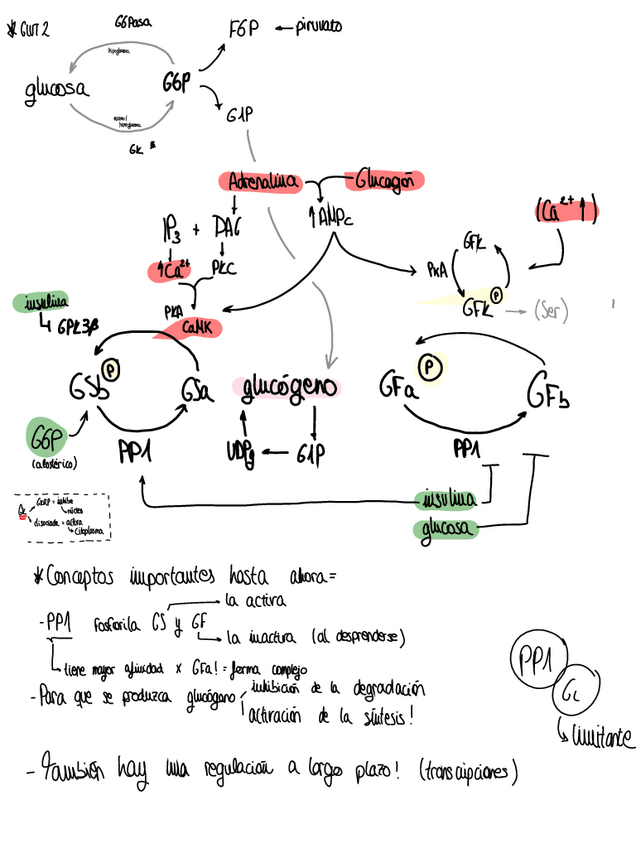 * GLUT 2
G6Pasa
F6P ← piruvato
glucosa
G6P
G1P
GK *
Adrenalina
Glucagón
IP3 + DAG
↑AMPc
(Ca2+ ↑)
↑Ca2+
PKC
PKA
GFK
GFK P → (Ser)
insulina
GPK3β
PKA
CaMK
GSb P
GSa
glucógeno
GFa P
GFb
G6P
(alostérico)
PP1
UDPg ← G1P
PP1
insulina
glucosa
GK
GKRP = inhibe
núcleo
disociada = activa
Citoplasma
*Conceptos importantes hasta ahora=
la activa
- PP1 fosforila GS y GF
la inactiva (al desprenderse)
tiene mayor afinidad x GFa! = forma complejo
- Para que se produzca glucógeno
inhibición de la degradación
activación de la síntesis!
PP1
GL
limitante
- También hay una regulación a largo plazo! (transcipciones)